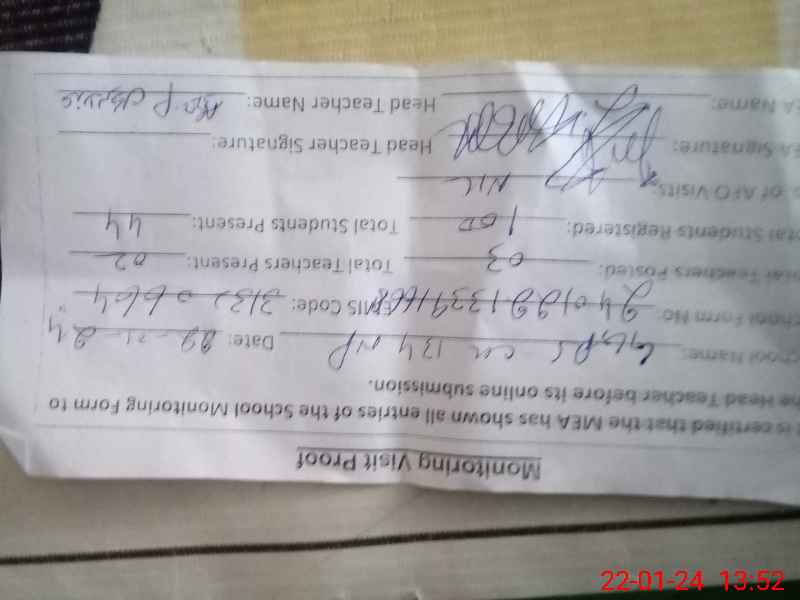 Monitoring Visit Proof
is certified that the MEA has shown all entries of the School Monitoring Form to
he Head Teacher before its online submission.
chool Name: GGPS CH 134 NP Date: 22-01-24
chool Form No: EMIS Code: 31320664
Teachers Posted: 03 Total Teachers Present: 02
otal Students Registered: 100 Total Students Present: 44
of AFO Visits: NIL
EA Signature: Head Teacher Signature:
EA Name: Head Teacher Name:
22-01-24 13:52